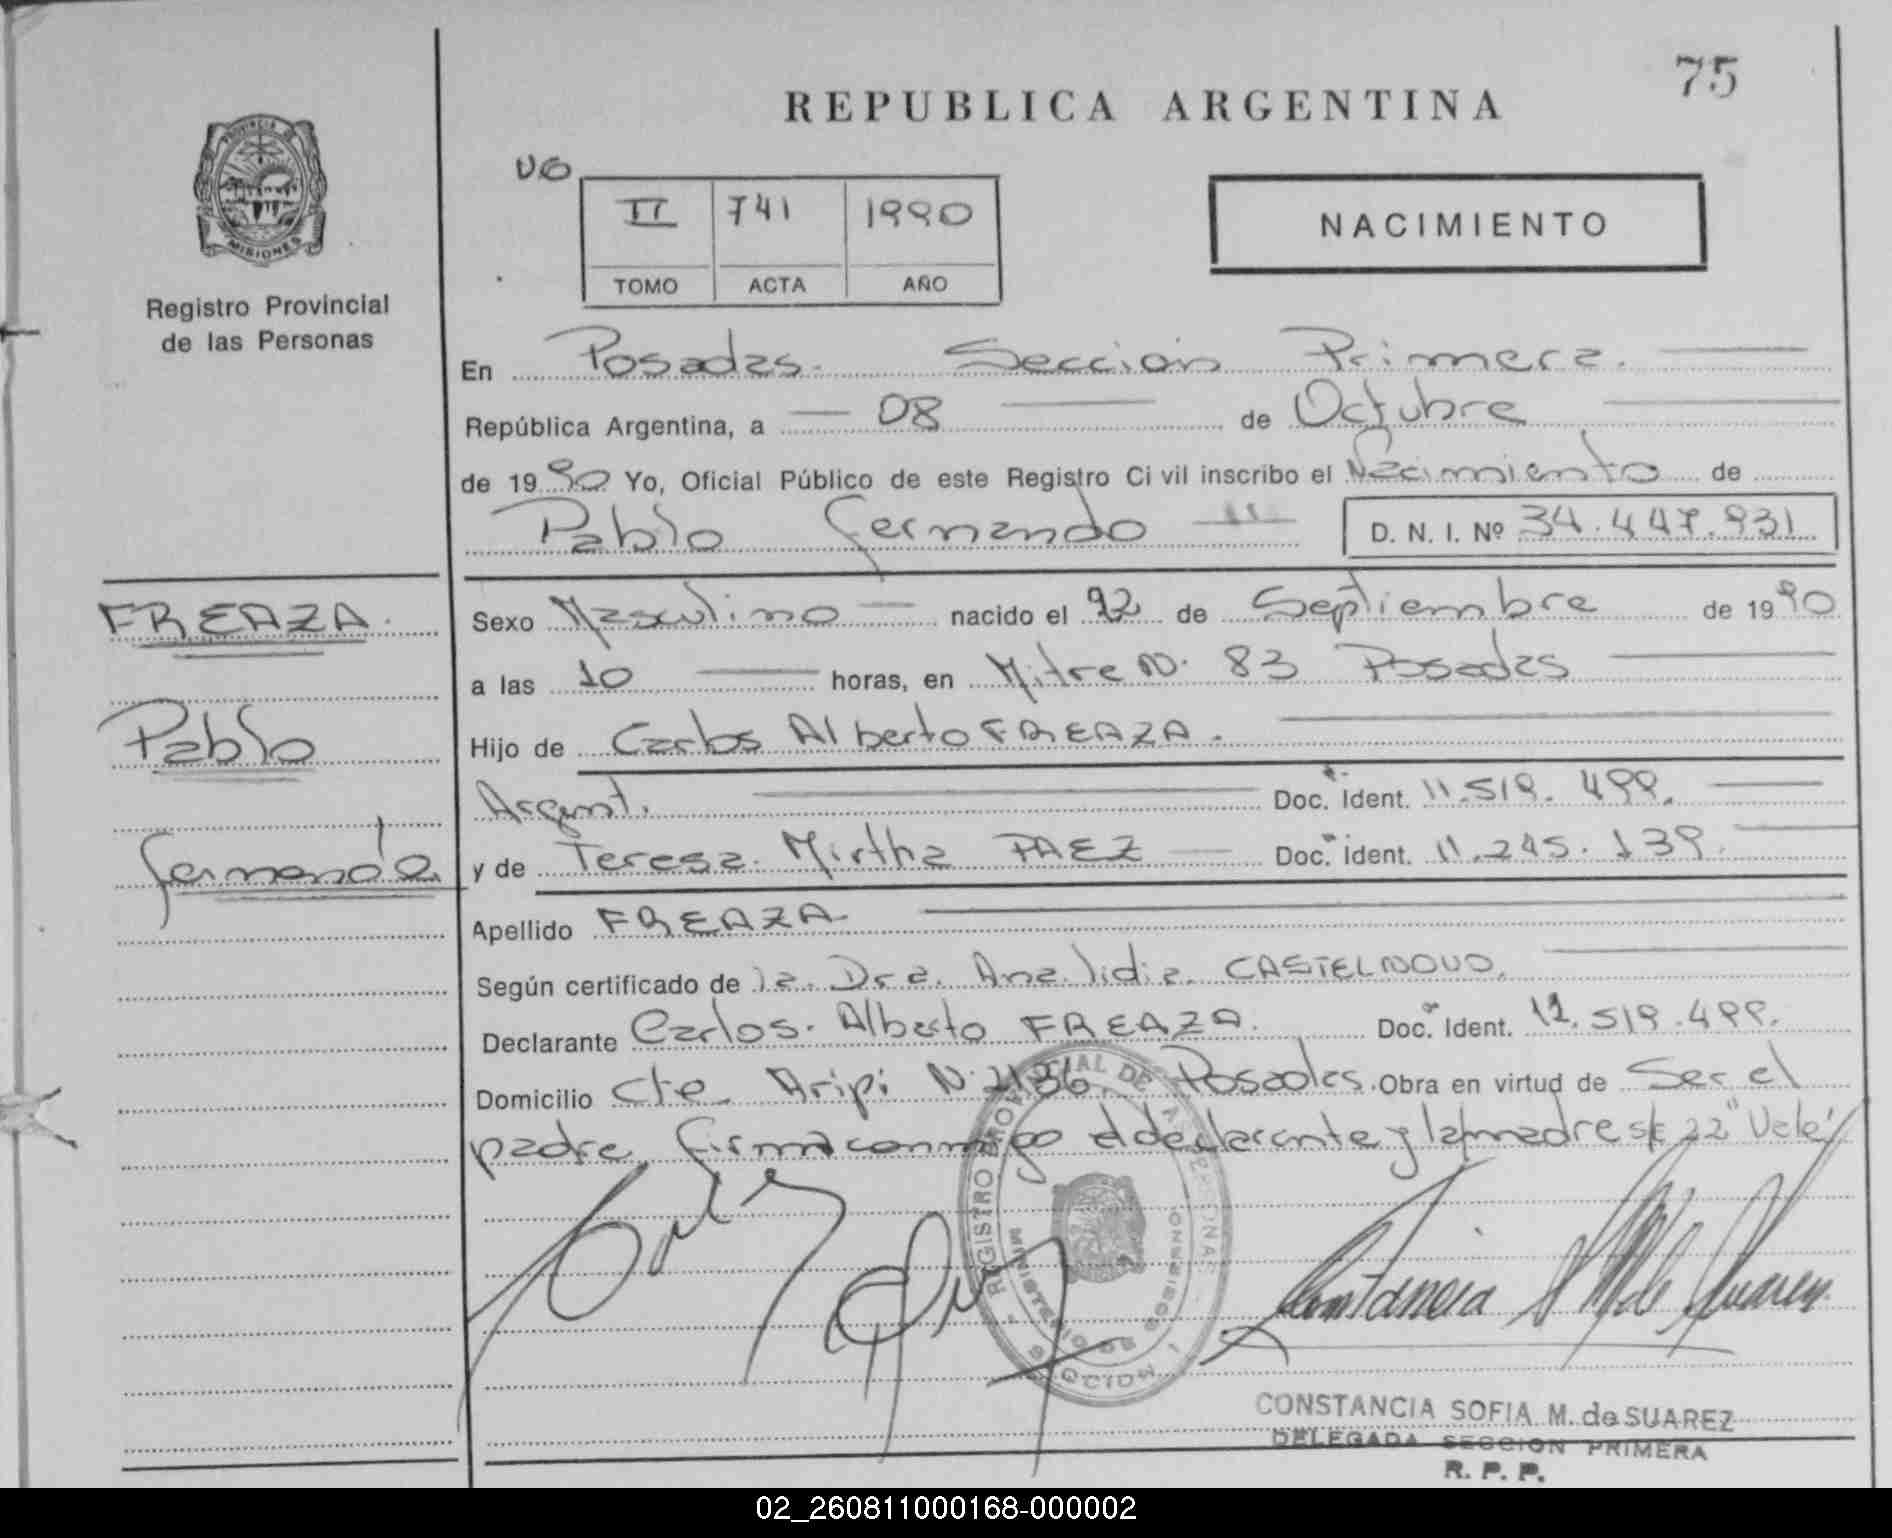 75
REPUBLICA ARGENTINA
PROVINCIA DE
MISIONES
Registro Provincial
de las Personas
VG
II 741 1990
TOMO ACTA AÑO
NACIMIENTO
En Posadas. Sección Primera.
República Argentina, a 08 de Octubre
de 1990 Yo, Oficial Público de este Registro Civil inscribo el Nacimiento de
Pablo Fernando D. N. I. Nº 34.447.931
FREAZA.
Pablo
Fernando
Sexo Masculino nacido el 22 de Septiembre de 1990
a las 10 horas, en Mitre N. 83 Posadas
Hijo de Carlos Alberto FREAZA.
Argent. Doc. Ident. 11.519.499.
y de Teresa. Mirtha PAEZ Doc. Ident. 11.245.139.
Apellido FREAZA
Según certificado de la. Dra. Ana. lidia. CASTELNOVO.
Declarante Carlos. Alberto FREAZA. Doc. Ident. 11.519.499.
Domicilio Cte. Aripi N. 2186 Posadas. Obra en virtud de Ser el
padre. firma conmigo el declarante y la madre s/e 22" Vale"
REGISTRO PROVINCIAL DE LAS PERSONAS
MINISTERIO DE GOBIERNO
SECCION 1
Constancia S M de Suarez
CONSTANCIA SOFIA M. de SUAREZ
DELEGADA SECCION PRIMERA
R. P. P.
02_260811000168-000002